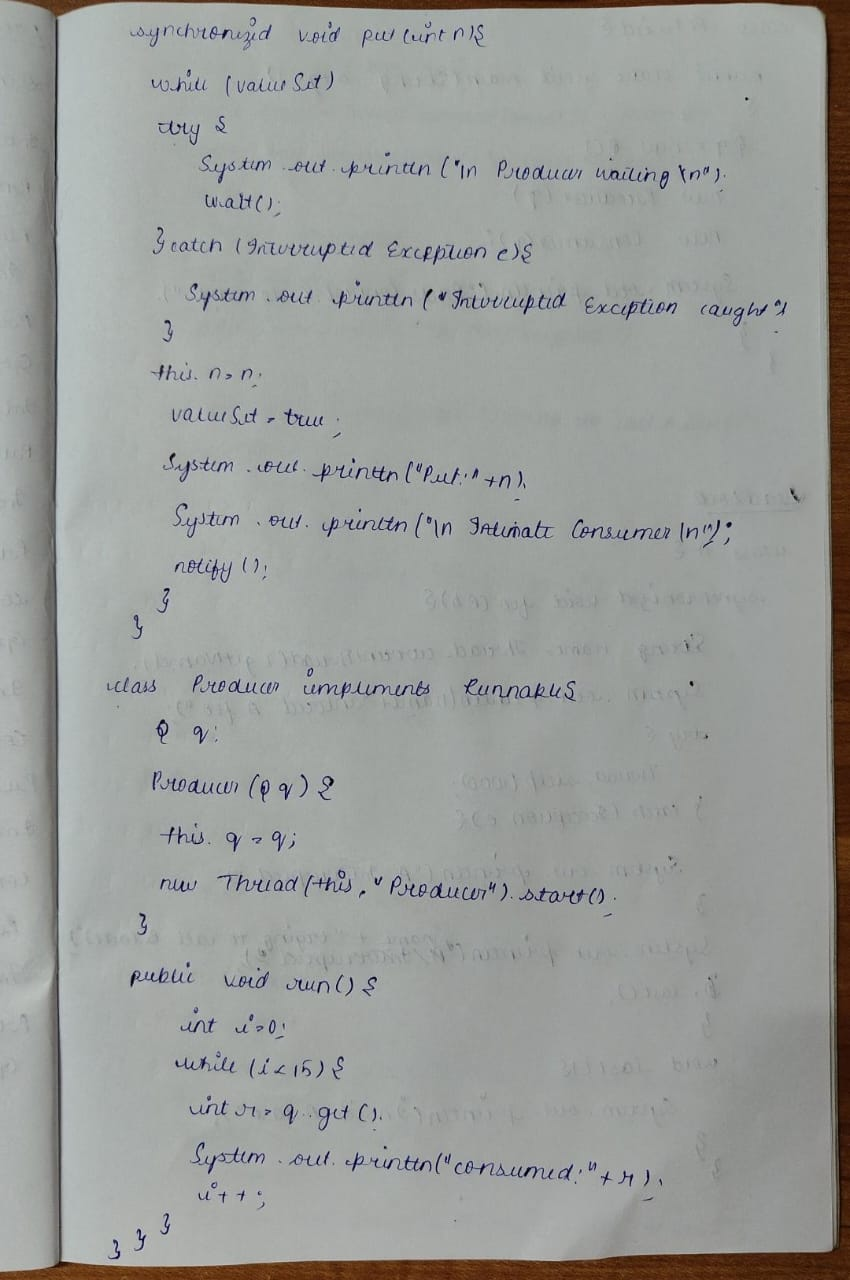 synchronized void put (int n){
while (valueSet)
try {
System.out.println ("\n Producer waiting \n");
wait();
} catch (Interrupted Exception e){
System.out println ("Interrupted Exception caught");
}
this.n=n;
valueSet = true;
System.out.println("Put:"+n);
System.out.println ("\n Intimate Consumer \n");
notify ();
}
}
class Producer implements Runnable{
Q q;
Producer (Q q) {
this.q = q;
new Thread (this, "Producer").start();
}
public void run() {
int i=0;
while (i<15) {
int r= q.get ();
System.out.println("consumed:"+r);
i++;
} } }